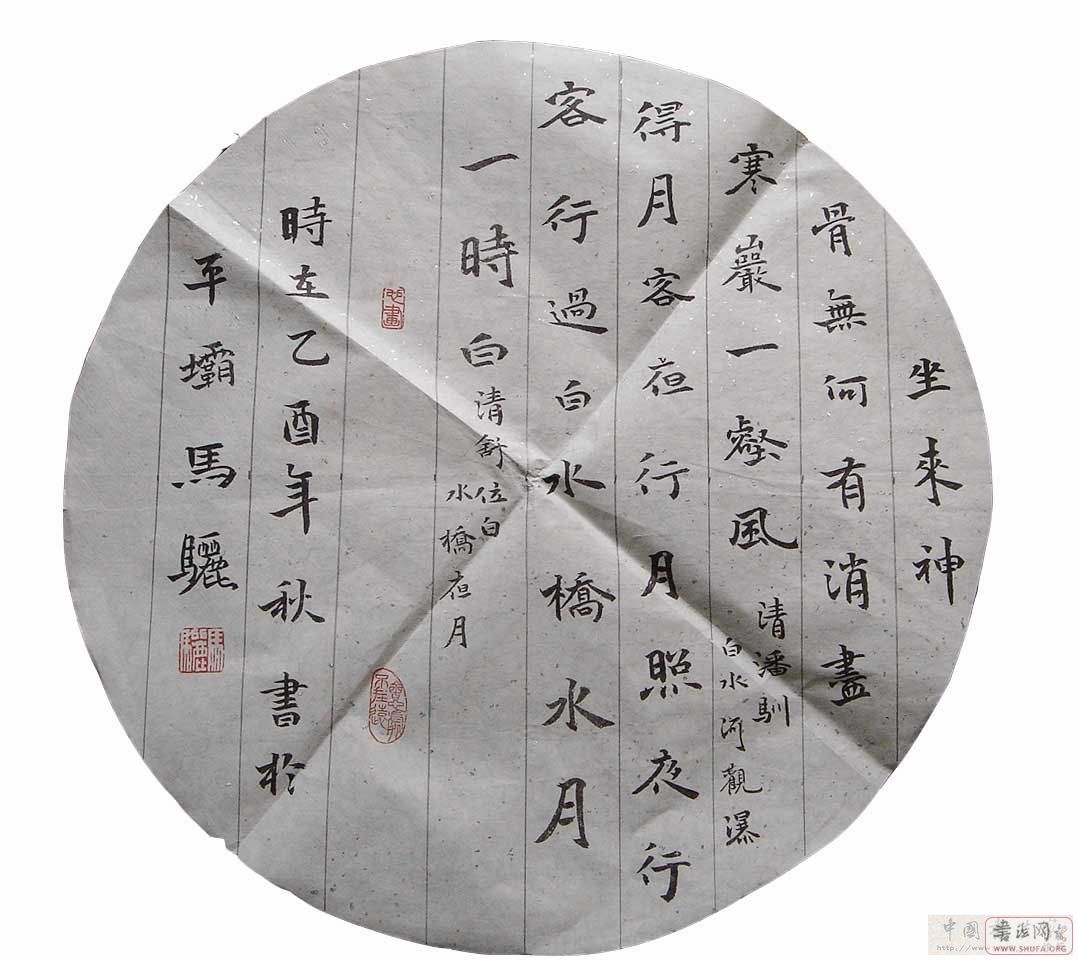 坐來神
骨無何有消盡
寒巖一壑風
清潘馴
白水河觀瀑
得月客夜行月照夜行
客行過白水橋水月
一時白
清舒位白
水橋夜月
時在乙酉年秋書於
平壩馬驪
書法网
WWW.SHUFA.ORG
中国
http://www.